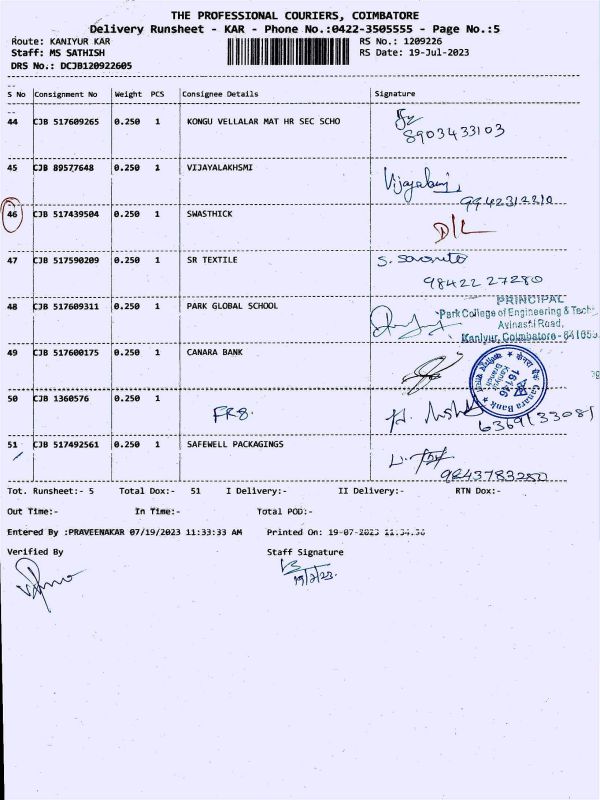 THE PROFESSIONAL COURIERS, COIMBATORE
Delivery Runsheet - KAR - Phone No.:0422-3505555 - Page No.:5
Route: KANIYUR KAR RS No.: 1209226
Staff: MS SATHISH RS Date: 19-Jul-2023
DRS No.: DCJB120922605
S No Consignment No Weight PCS Consignee Details Signature
44 CJB 517609265 0.250 1 KONGU VELLALAR MAT HR SEC SCHO
8903433103
45 CJB 89577648 0.250 1 VIJAYALAKHSMI
9942312210
46 CJB 517439504 0.250 1 SWASTHICK D/L
47 CJB 517590209 0.250 1 SR TEXTILE
98422 27280
48 CJB 517609311 0.250 1 PARK GLOBAL SCHOOL
PRINCIPAL
Park College of Engineering & Tech
Avinashi Road,
Kaniyur, Coimbatore - 641659
49 CJB 517600175 0.250 1 CANARA BANK
Canara Bank
Kaniyur
Branch
16146
50 CJB 1360576 0.250 1 FRG.
6369133081
51 CJB 517492561 0.250 1 SAFEWELL PACKAGINGS
9843783280
Tot. Runsheet:- 5 Total Dox:- 51 I Delivery:- II Delivery:- RTN Dox:-
Out Time:- In Time:- Total POD:-
Entered By :PRAVEENAKAR 07/19/2023 11:33:33 AM Printed On: 19-07-2023
Verified By Staff Signature